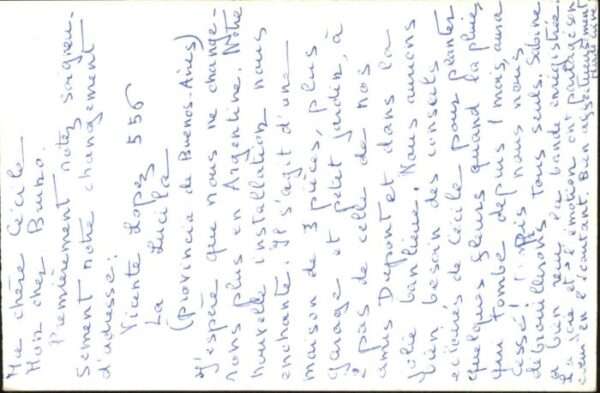 Ma chère Cécile
Mon cher Bruno.
Premièrement notez soigneu-
sement notre changement
d'adresse:
Vicente Lopez 556
La Lucila
(provincia de Buenos-Aires)
J'espère que nous ne change-
rons plus en Argentine. Notre
nouvelle installation nous
enchante. Il s'agit d'une
maison de 3 pièces, plus
garage et petit jardin, à
2 pas de celle de nos
amis Dupont et dans la
jolie banlieue. Nous aurions
bien besoin des conseils
éclairés de Cécile pour planter
quelques fleurs quand la pluie,
qui tombe depuis 1 mois, aura
cessé! nous nous
débrouillerons tous seuls. Sabine
a bien reçu la bande enregistrée.
La joie et l'émotion ont partagé son
cœur en l'écoutant. Bien affectueusement